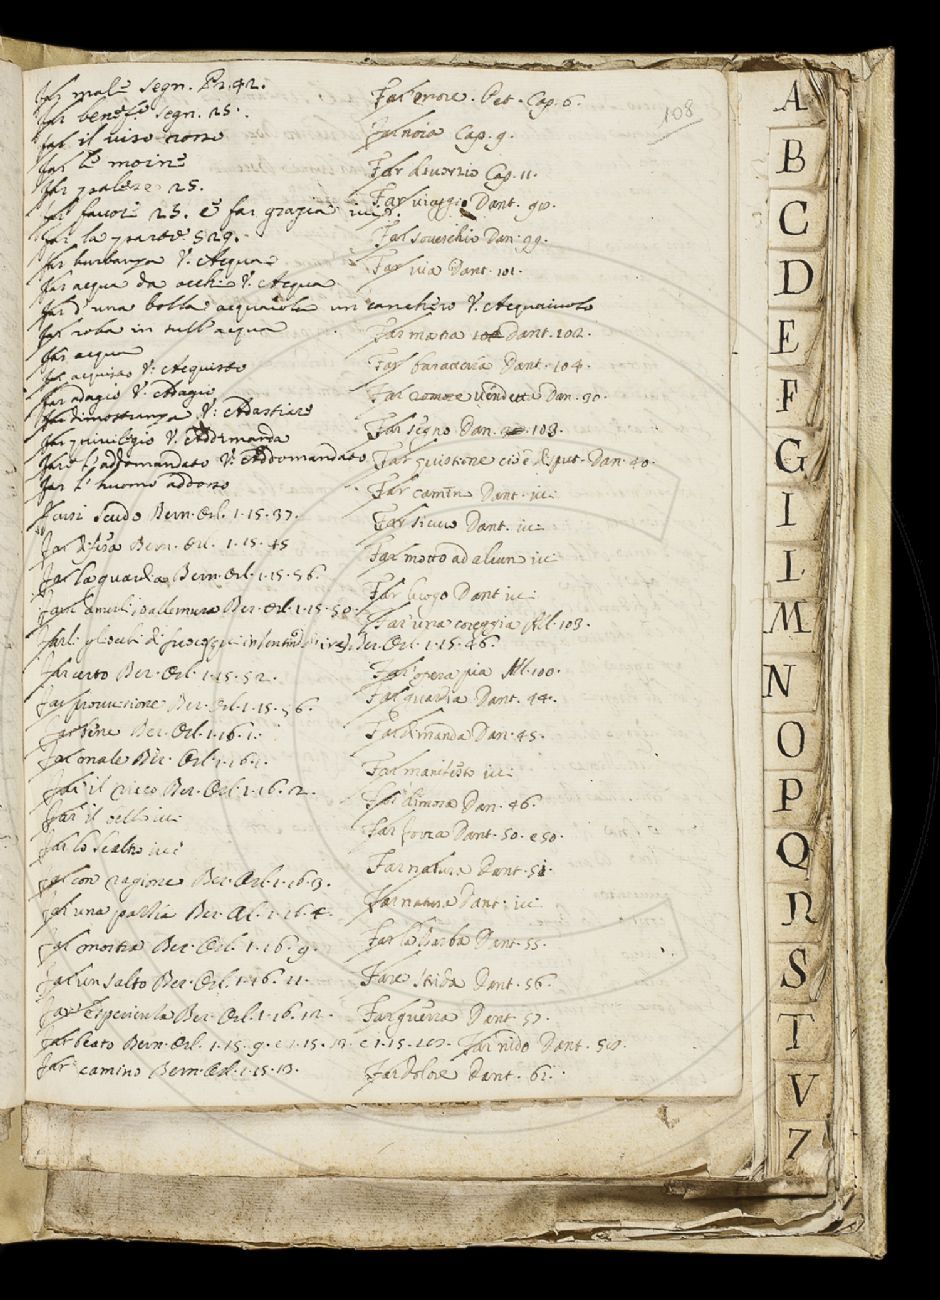 108
far mal segn. Pr. 42.
far benef. segn. 25.
far il viso rosso
far le moine
far palese 25.
far favori 25. e far grazia
far la parte 529.
far burbanza V. Acqua
far acqua da occhi V. Acqua
far d'una bolla acquaiola un canchero V. Acquaiuolo
far roba in sull'acqua
far acqua
far acquisto V. Acquisto
far adagio V. Adagio
far dimostranza V.
far privilegio V. Addimanda
far l'addomandato V. Addomandato
far l'huomo addosso
farsi scudo Bern. Orl. 1.15.37.
far difesa Bern. Orl. 1.15.45
far la guardia Bern. Orl. 1.15.56.
Ber. Orl. 1.15.50.
Ber. Orl. 1.15.46.
far certo Ber. Orl. 1.15.52.
far provvisione Ber. Orl. 1.15.56.
far bene Ber. Orl. 1.16.1.
far male Ber. Orl. 1.16.1.
far il ricco Ber. Orl. 1.16.2.
far il bello ivi
far lo scaltro ivi
far con ragione Ber. Orl. 1.16.3.
far una pazzia Ber. Orl. 1.16.4.
far mostra Ber. Orl. 1.16.9.
far un salto Ber. Orl. 1.16.11.
far esperienza Ber. Orl. 1.16.12.
far beato Bern. Orl. 1.15.9. e 1.15.13. e 1.15.
far camino Bern. Orl. 1.15.13.
Far onore. Pet. Cap. 6.
Far noia Cap. 9.
Far divorzio Cap. 11.
Far viaggio Dant. 90.
Far soverchio Dan. 99.
Far via Dant. 101.
Far matia Dant. 102.
Far baratteria Dant. 104.
Far vendetta Dan. 90.
Far segno Dan. 103.
Far quistione cioè disput. Dan. 40.
Far camin Dant. ivi
Far sicuro Dant. ivi
Far motto ad alcun ivi
Far luogo Dant ivi
Far una coreggia All. 103.
Far opera pia All. 100.
Far guardia Dant. 44.
Far dimanda Dan. 45.
Far manifesto ivi
Far dimora Dan. 46.
Far forza Dant. 50. e 50.
Far natura Dant. 54.
Far natura Dant. ivi
Far la barba Dant. 55.
Fare strida Dant. 56.
Far guerra Dant. 57.
Far nido Dant. 58.
Far dolore Dant. 61.
A
B
C
D
E
F
G
I
L
M
N
O
P
Q
R
S
T
V
Z